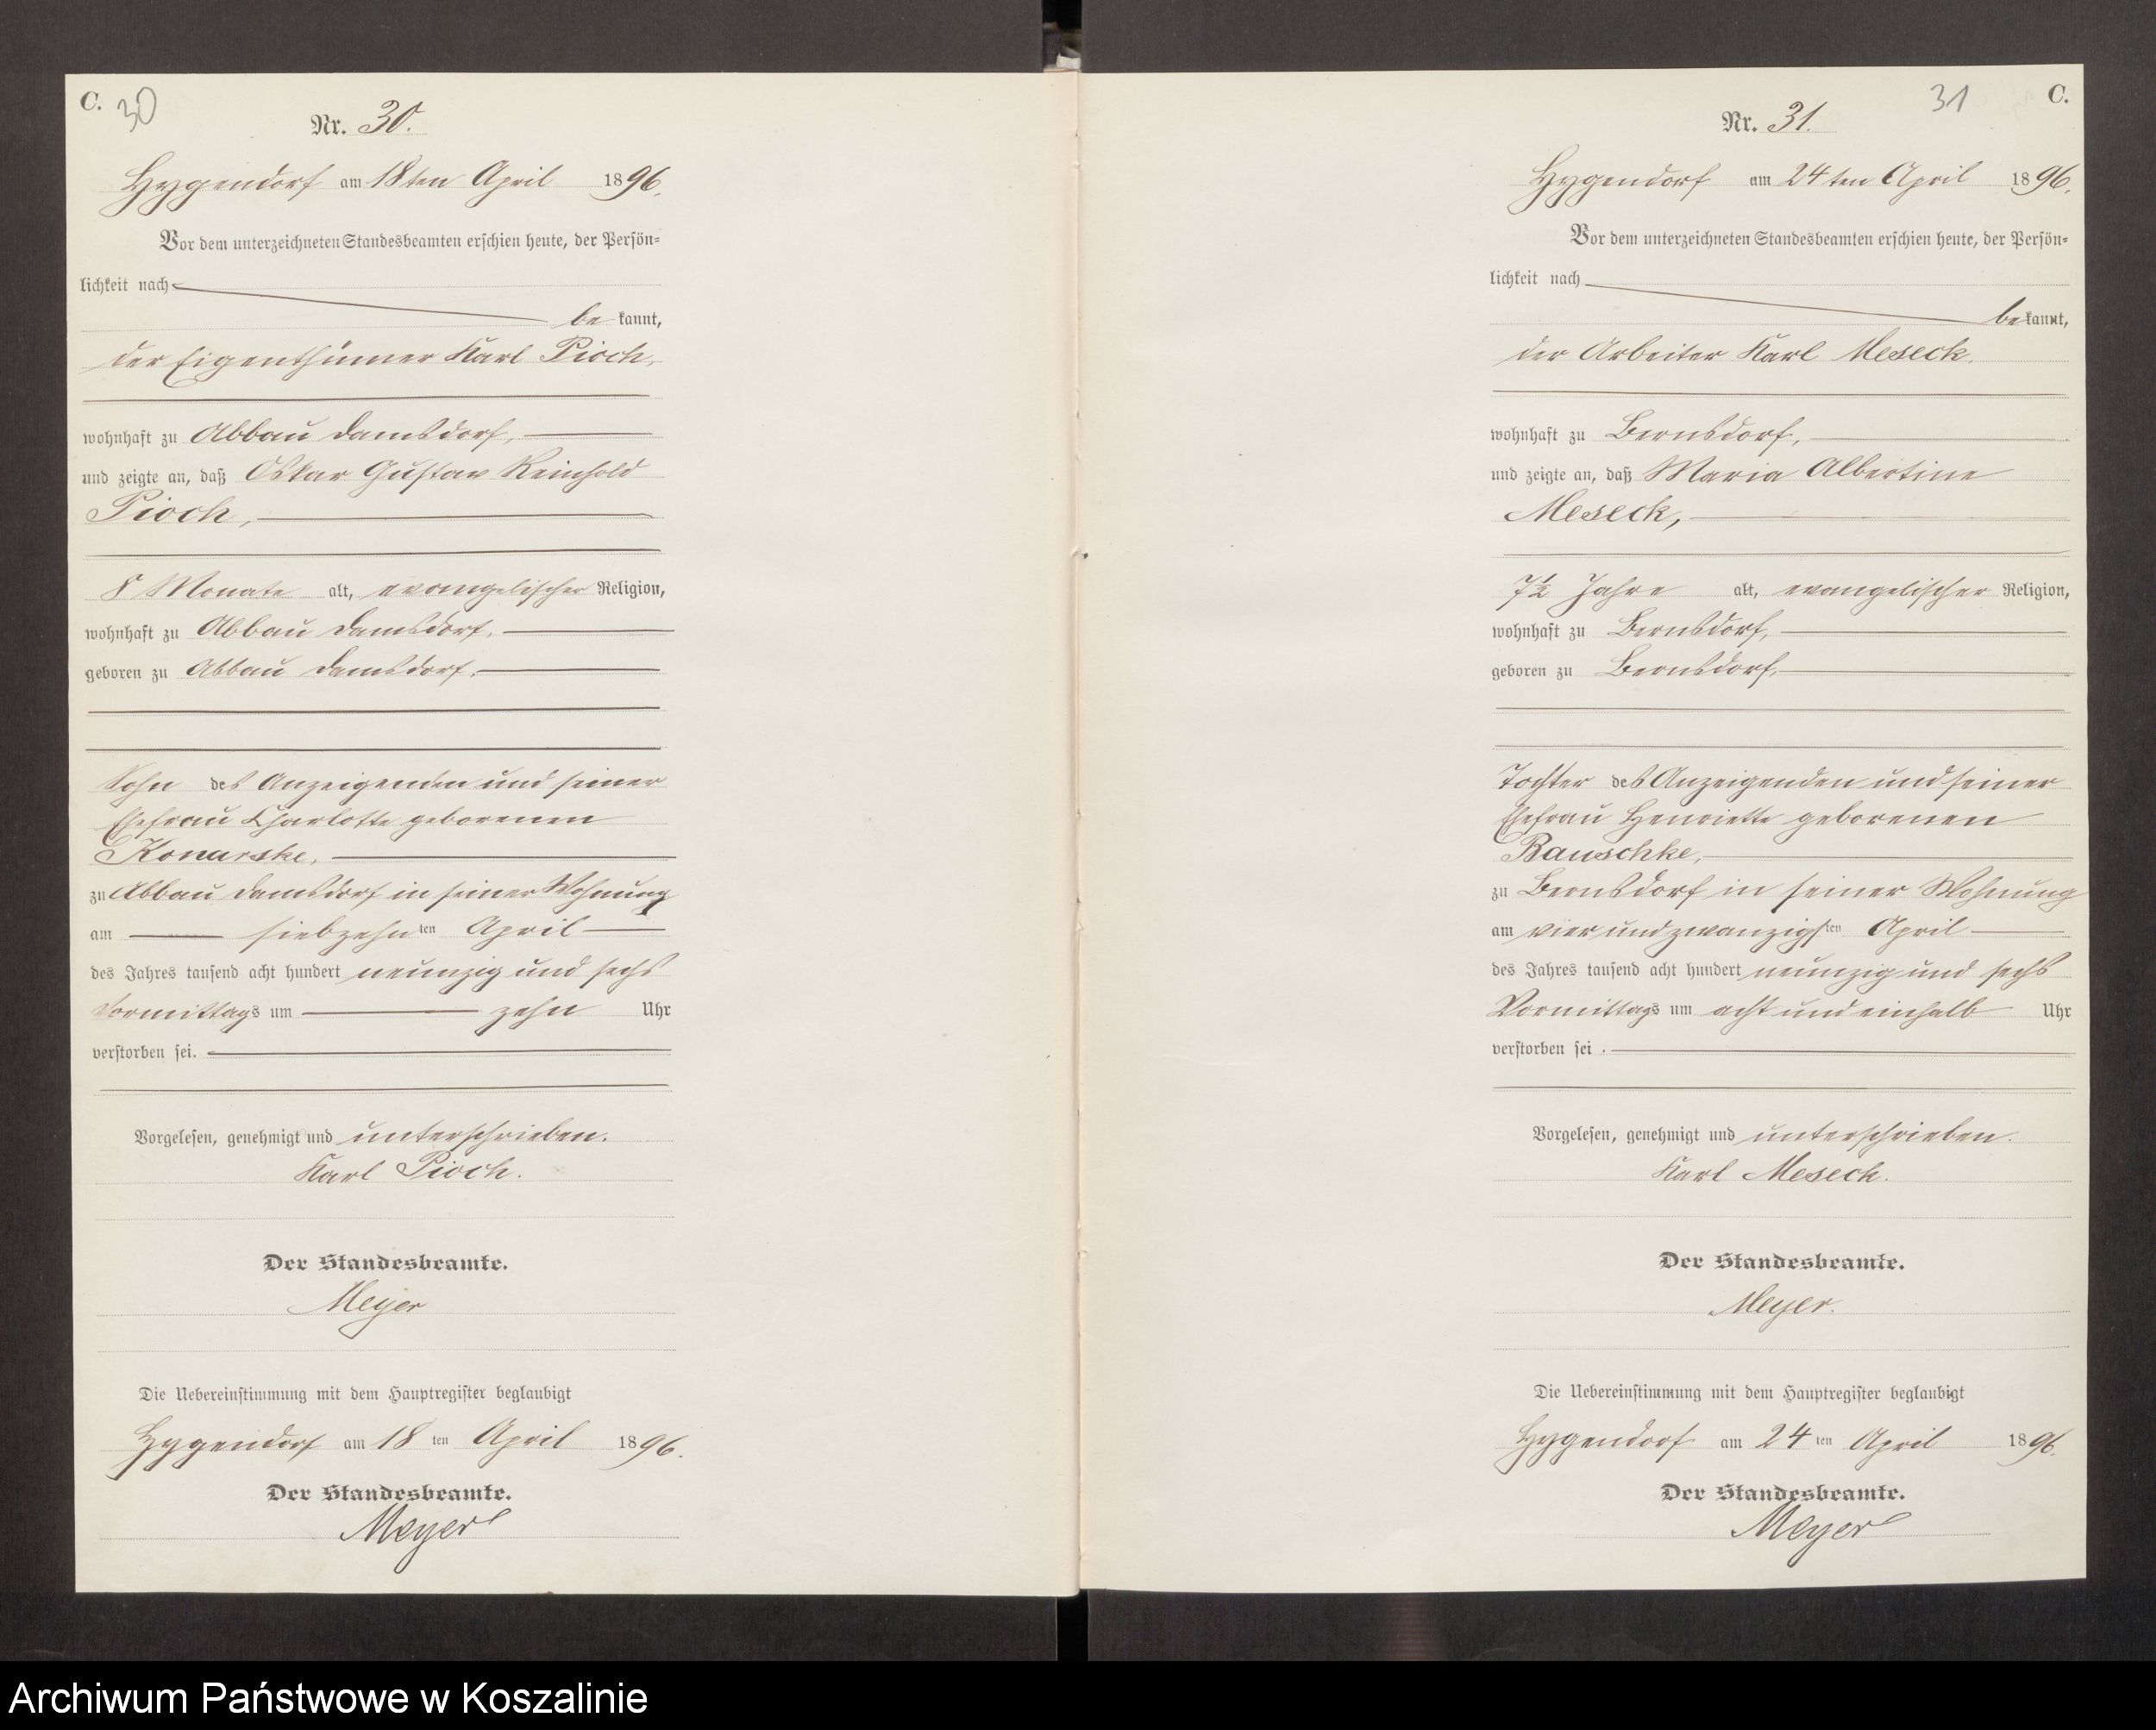 C. 30
Nr. 30.
Hygendorf am 18ten April 1896.
Vor dem unterzeichneten Standesbeamten erschien heute, der Persön-
lichkeit nach
be kannt,
der Eigenthümer Karl Pioch,
wohnhaft zu Abbau Damsdorf,
und zeigte an, daß Oskar Gustav Reinhold
Pioch,
8 Monate alt, evangelischer Religion,
wohnhaft zu Abbau Damsdorf,
geboren zu Abbau Damsdorf,
Sohn des Anzeigenden und seiner
Ehefrau Charlotte geborenen
Konarske,
zu Abbau Damsdorf in seiner Wohnung
am siebzehn ten April
des Jahres tausend acht hundert neunzig und sechs
Vormittags um zehn Uhr
verstorben sei.
Vorgelesen, genehmigt und unterschrieben.
Karl Pioch.
Der Standesbeamte.
Meyer
Die Uebereinstimmung mit dem Hauptregister beglaubigt
Hygendorf am 18 ten April 1896.
Der Standesbeamte.
Meyer
31 C.
Nr. 31.
Hygendorf am 24ten April 1896.
Vor dem unterzeichneten Standesbeamten erschien heute, der Persön-
lichkeit nach
be kannt,
der Arbeiter Karl Meseck,
wohnhaft zu Bernsdorf,
und zeigte an, daß Maria Albertine
Meseck,
7½ Jahre alt, evangelischer Religion,
wohnhaft zu Bernsdorf,
geboren zu Bernsdorf,
Tochter des Anzeigenden und seiner
Ehefrau Henriette geborenen
Rauschke,
zu Bernsdorf in seiner Wohnung
am vier und zwanzigsten April
des Jahres tausend acht hundert neunzig und sechs
Vormittags um acht und einhalb Uhr
verstorben sei.
Vorgelesen, genehmigt und unterschrieben.
Karl Meseck.
Der Standesbeamte.
Meyer.
Die Uebereinstimmung mit dem Hauptregister beglaubigt
Hygendorf am 24 ten April 1896.
Der Standesbeamte.
Meyer
Archiwum Państwowe w Koszalinie